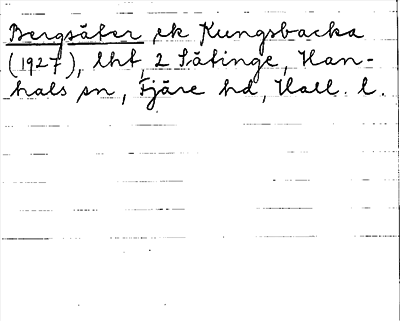 Bergsäter ek Kungsbacka
(1927), lht, 2 Sätinge, Han-
hals sn, Fjäre hd, Hall. l.